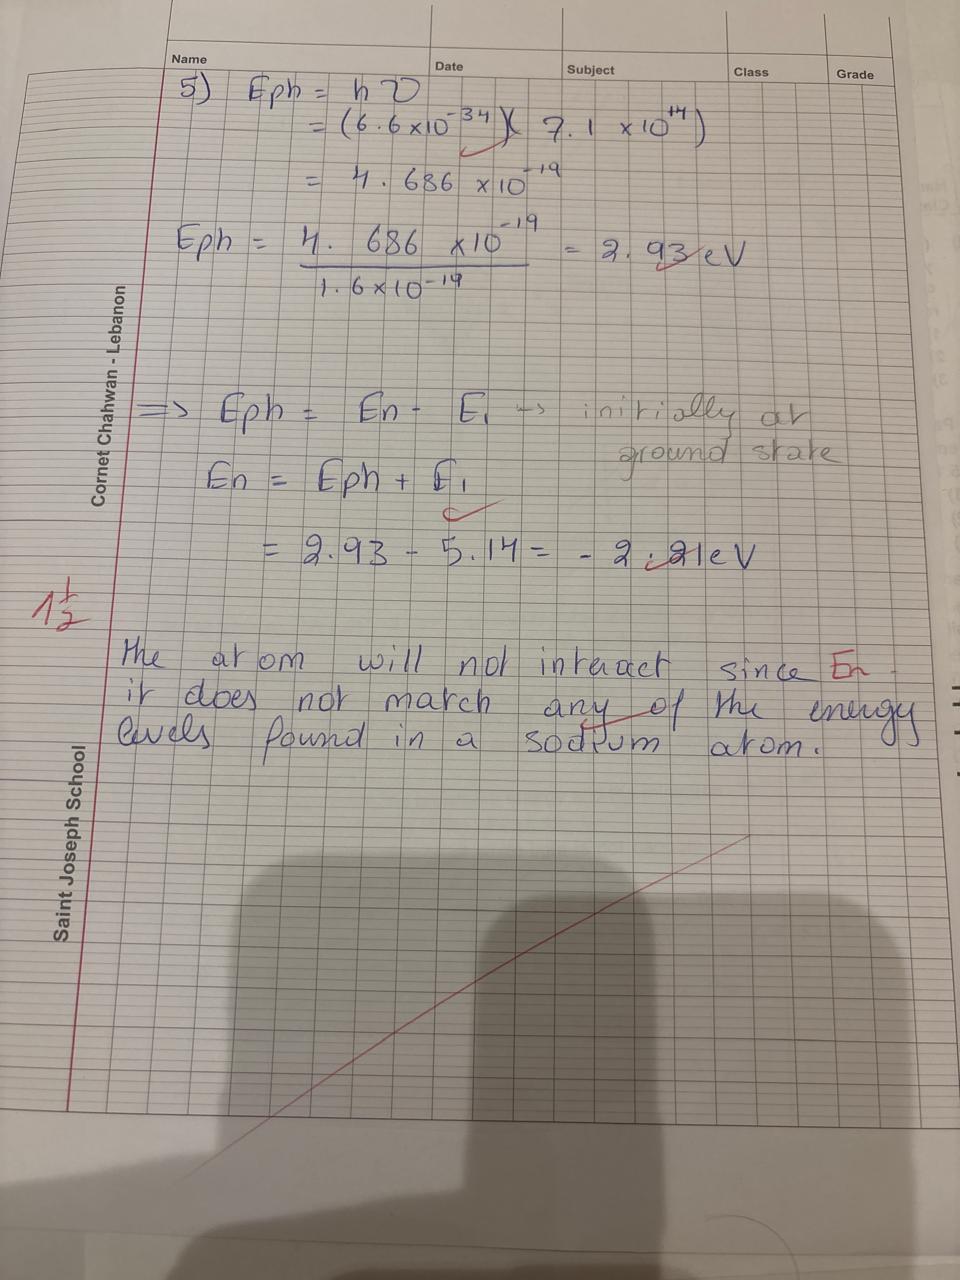 Name Date Subject Class Grade
5) Eph = hν
= (6.6 x10^-34)( 7.1 x10^14)
= 4.686 x10^-19
Eph = 4.686 x10^-19 / 1.6 x10^-19 = 2.93 eV
=> Eph = En - E1 -> initially at
ground state
En = Eph + E1
= 2.93 - 5.14 = - 2.21eV
1 1/2
the atom will not interact since En
it does not match any of the energy
levels found in a sodium atom.
Cornet Chahwan - Lebanon
Saint Joseph School